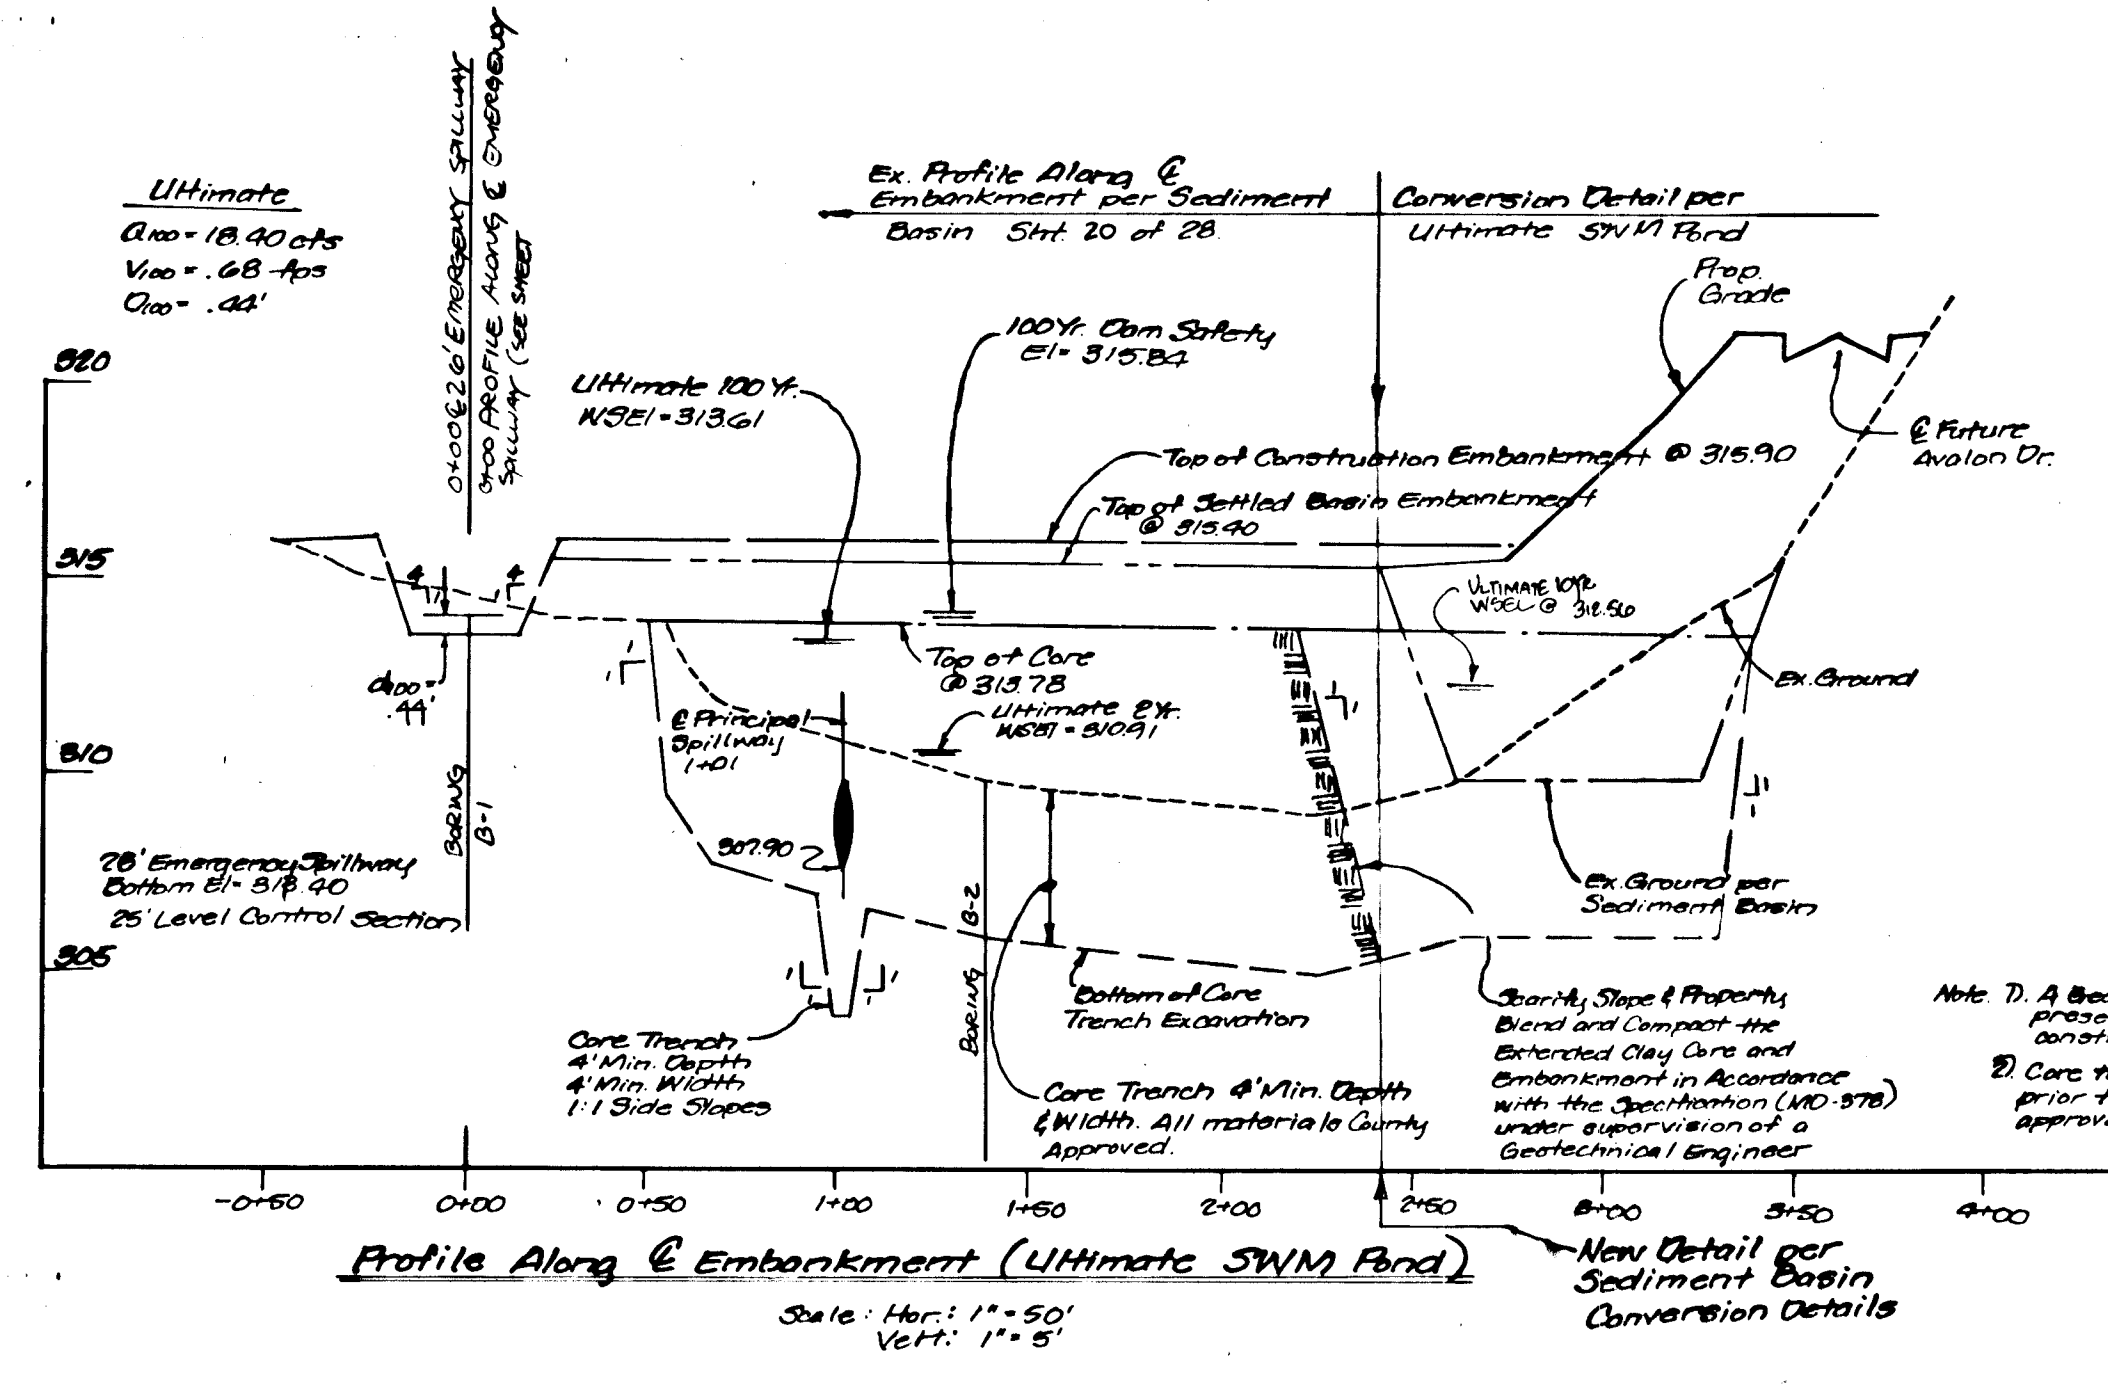 Ultimate
Q100 = 18.40 cfs
V100 = .68 fps
D100 = .44'
0+00 @ 26' EMERGENCY SPILLWAY
0+00 PROFILE ALONG ℄ EMERGENCY
SPILLWAY (SEE SHEET
Ex. Profile Along ℄
Embankment per Sediment
Basin Sht. 20 of 28.
Conversion Detail per
Ultimate SWM Pond
Prop.
Grade
100 Yr. Dam Safety
El = 315.84
Ultimate 100 Yr.
WSEl = 313.61
℄ Future
Avalon Dr.
Top of Construction Embankment @ 315.90
Top of Settled Basin Embankment
@ 315.40
320
315
310
305
4
1
4
1
ULTIMATE 10YR
WSEL @ 312.56
d100 =
.44'
Top of Core
@ 313.78
Ex. Ground
Ultimate 2 Yr.
WSEl = 310.91
℄ Principal
Spillway
1+01
307.90
BORING
B-1
28' Emergency Spillway
Bottom El = 313.40
25' Level Control Section
Ex. Ground per
Sediment Basin
BORING B-2
Core Trench
4' Min. Depth
4' Min. Width
1:1 Side Slopes
Bottom of Core
Trench Excavation
Core Trench 4' Min. Depth
& Width. All materials County
Approved.
Scarify Slope & Property
Blend and Compact the
Extended Clay Core and
Embankment in Accordance
with the Specification (MD-378)
under supervision of a
Geotechnical Engineer
Note: 1). A
prese
const
2). Core
prior
approv
-0+50
0+00
0+50
1+00
1+50
2+00
2+50
3+00
3+50
4+00
Profile Along ℄ Embankment (Ultimate SWM Pond)
Scale: Hor.: 1" = 50'
Vert.: 1" = 5'
New Detail per
Sediment Basin
Conversion Details